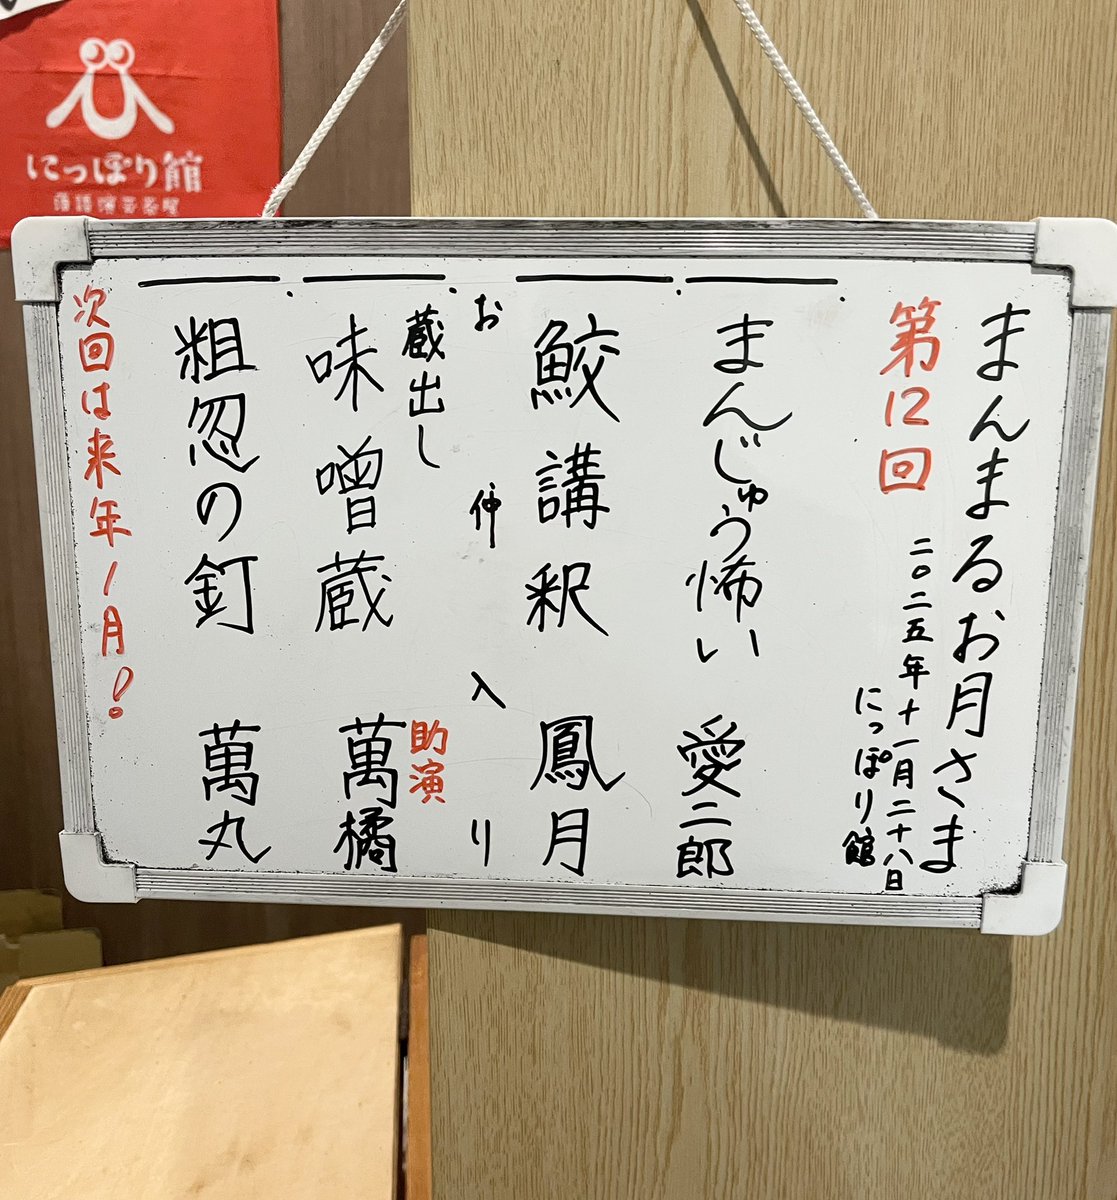 まんまるお月さま
第12回
二〇二五年十一月二十八日
にっぽり館
一、まんじゅう怖い 愛二郎
一、鮫講釈 鳳月
お仲入り
蔵出し
一、味噌蔵 助演 萬橘
一、粗忽の釘 萬丸
次回は来年1月!
にっぽり館